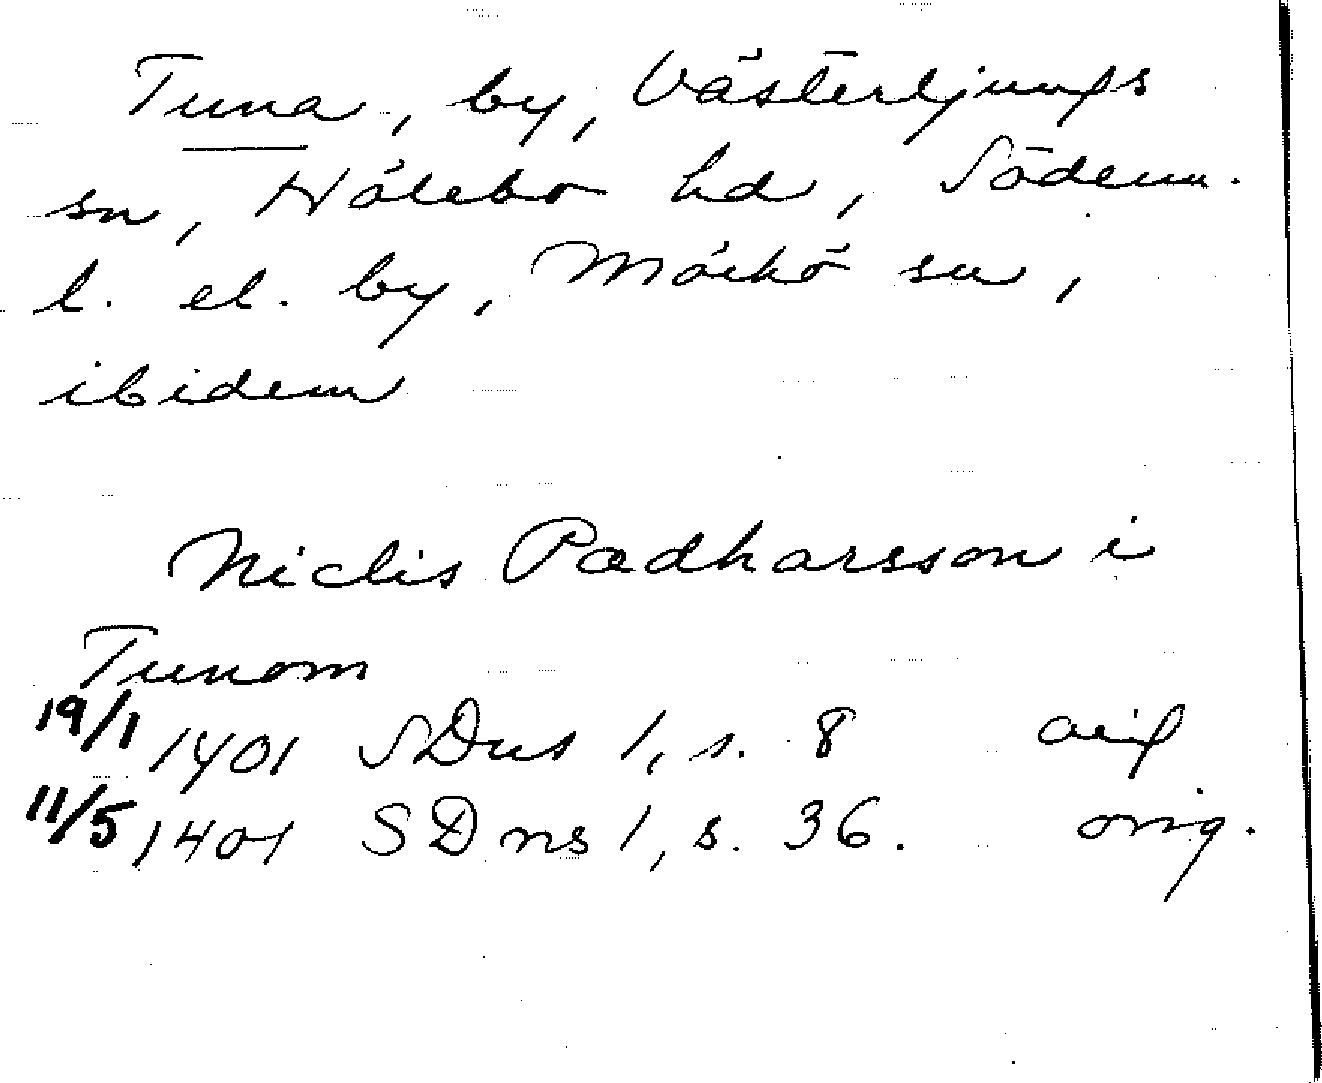 Tuna, by, Västerljungs
sn, Hölebo hd, Söderm.
l. el. by, Mörkö sn,
ibidem
Niclis Pædharsson i
Tunom
19/1 1401 SDns 1, s. 8 orig
11/5 1401 SDns 1, s. 36. orig.